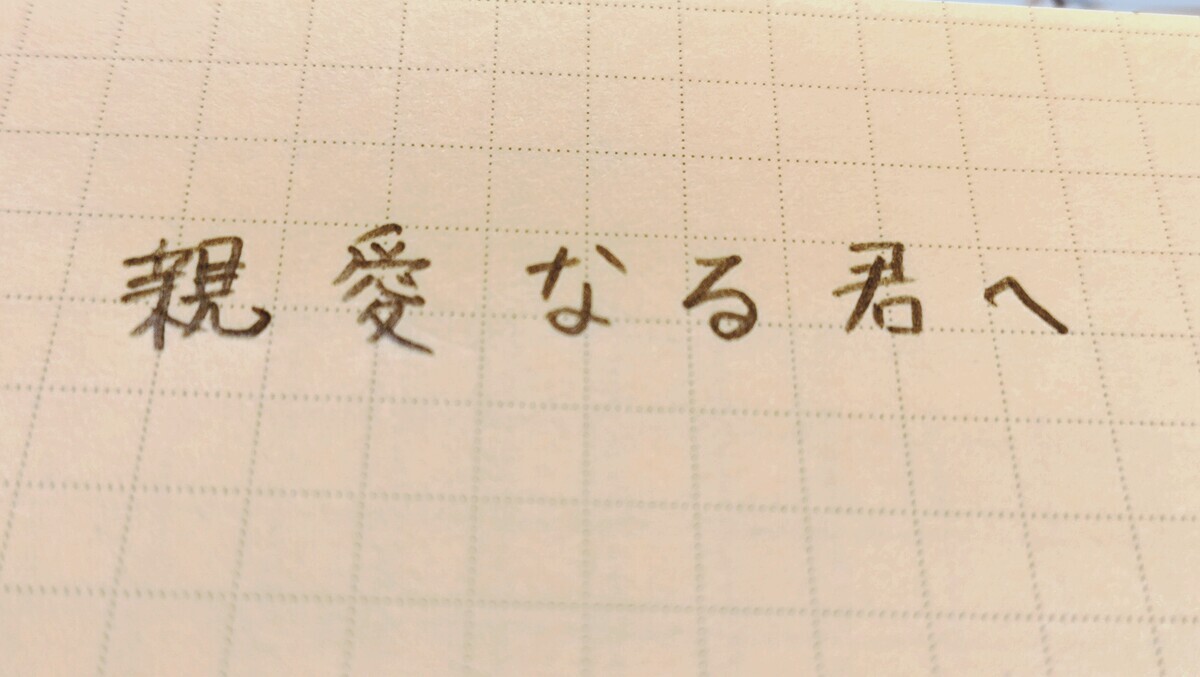 親愛なる君へ